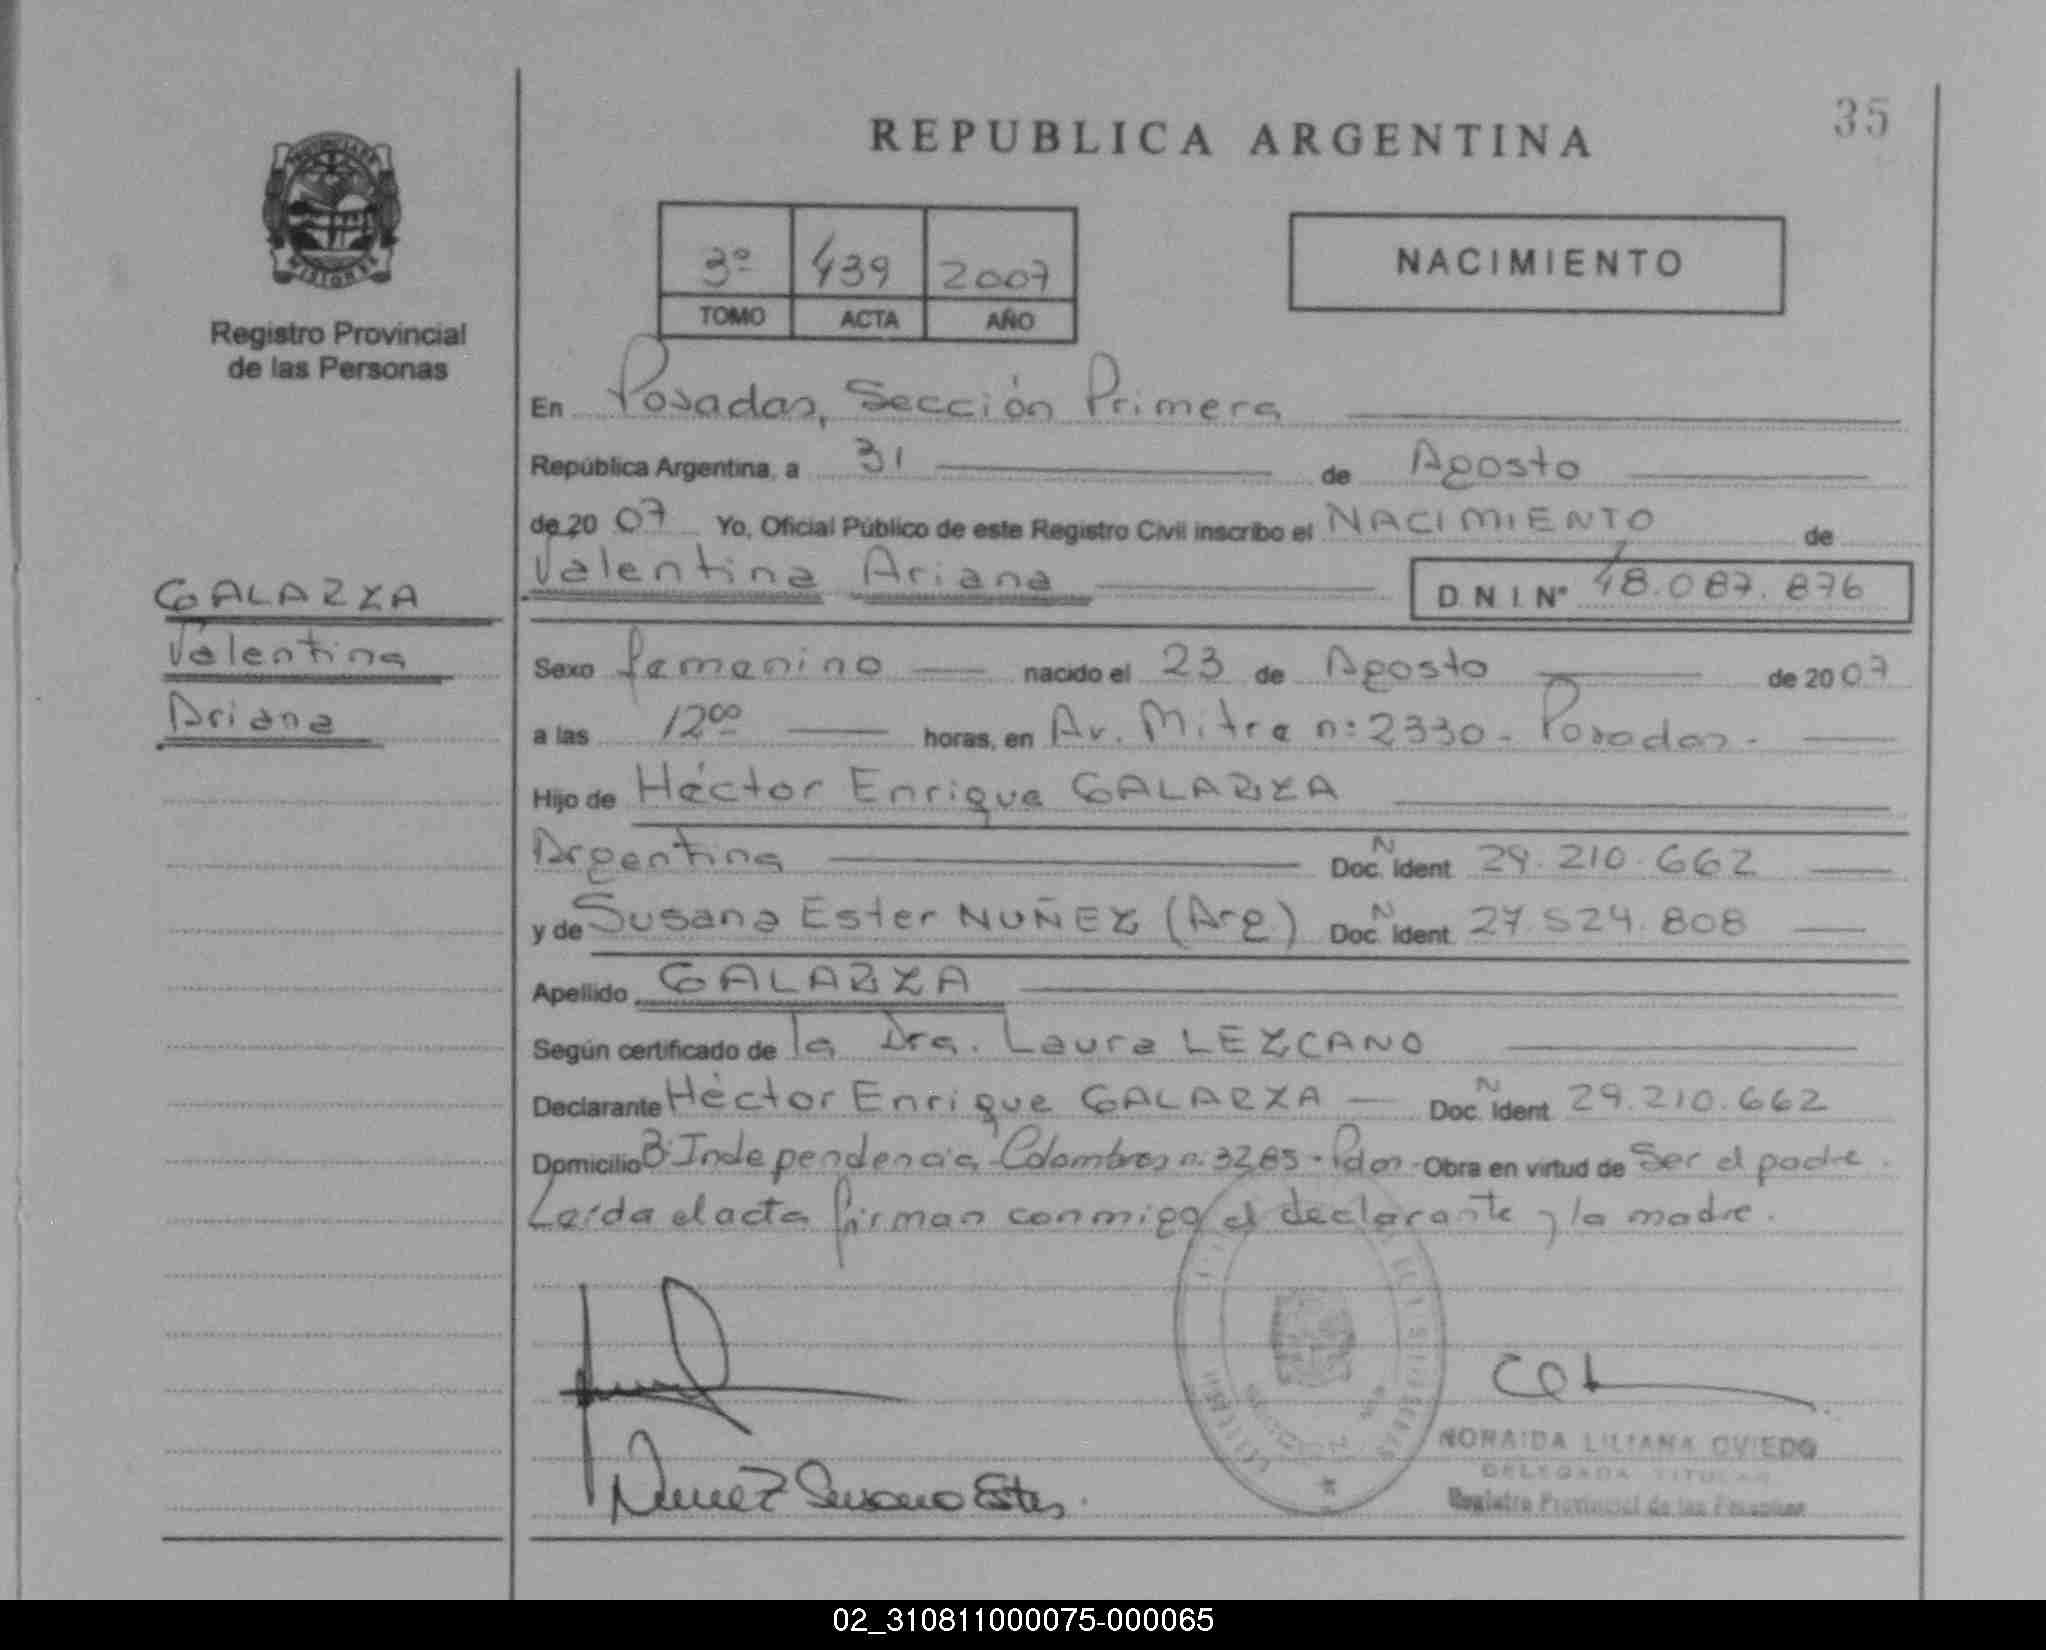 35
REPUBLICA ARGENTINA
PROVINCIA DE
MISIONES
Registro Provincial
de las Personas
3º 439 2007
TOMO ACTA AÑO
NACIMIENTO
En Posadas, Sección Primera
República Argentina, a 31 de Agosto
de 20 07 Yo, Oficial Público de este Registro Civil inscribo el NACIMIENTO de
Valentina Ariana D.N.I. Nº 48.087.876
GALARZA
Valentina
Ariana
Sexo femenino nacido el 23 de Agosto de 20 07
a las 12⁰⁰ horas, en Av. Mitre n: 2330 - Posadas -
Hijo de Héctor Enrique GALARZA
Argentina Doc. N Ident 29.210.662
y de Susana Ester NUÑEZ (Arg) Doc. N Ident. 27.524.808
Apellido GALARZA
Según certificado de la Dra. Laura LEZCANO
Declarante Héctor Enrique GALARZA — Doc. N Ident 29.210.662
Domicilio Bº Independencia Colombres n. 3285 - Pdas - Obra en virtud de Ser el padre.
Leída el acta firman conmigo el declarante y la madre.
Nuñez Susana Ester
NORAIDA LILIANA OVIEDO
DELEGADA TITULAR
Registro Provincial de las Personas
02_310811000075-000065